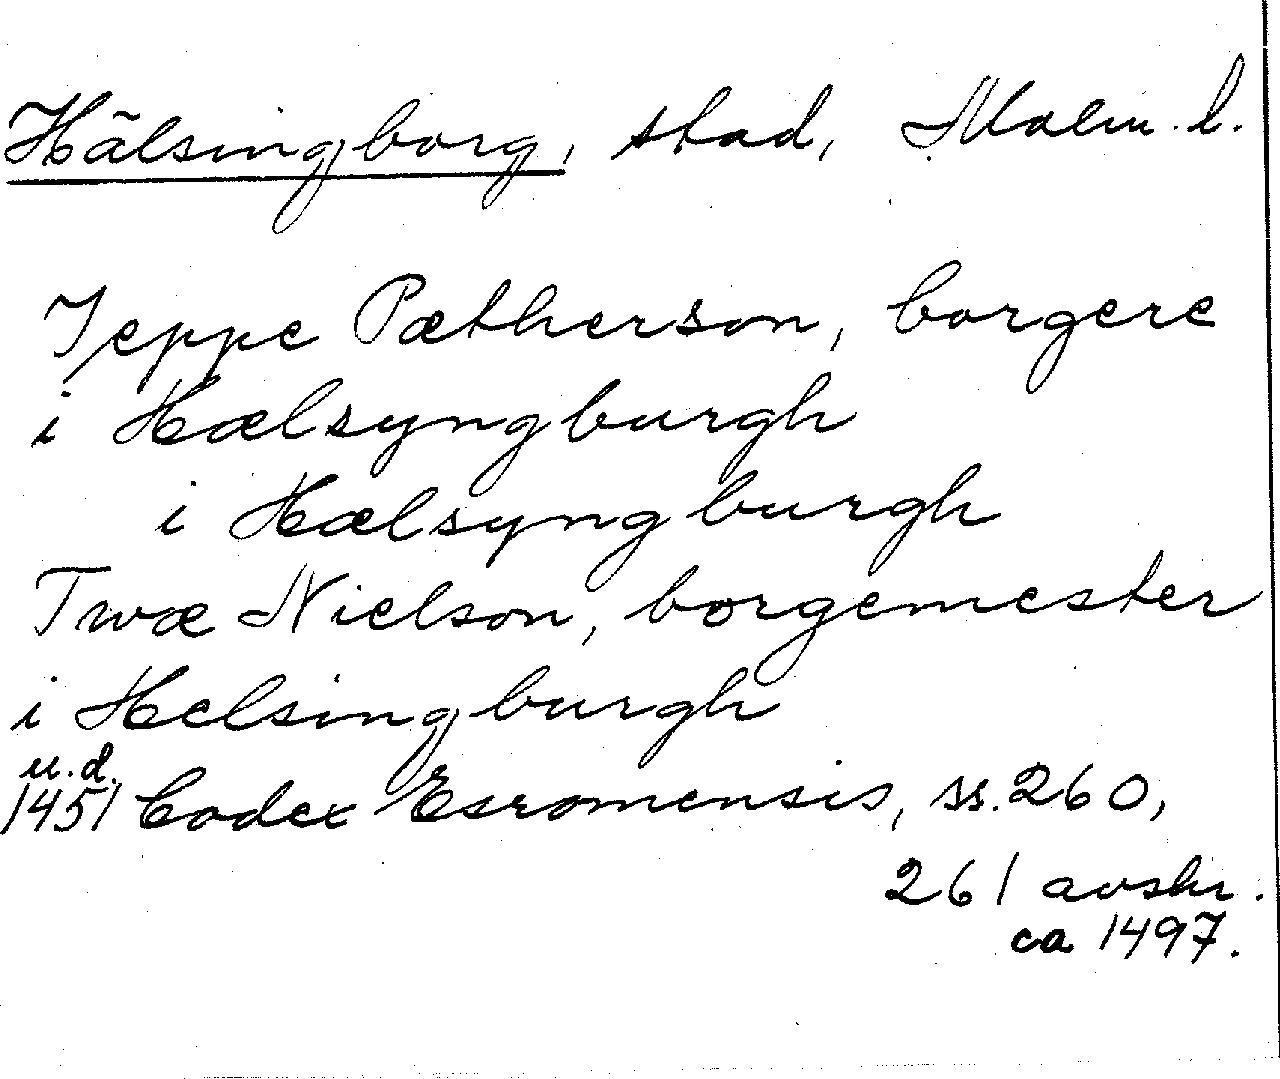 Hälsingborg, stad, Malm. l.
Jeppe Pætherson, borgere
i Hælsyngburgh
i Hælsyngburgh
Twæ Nielson, borgemester
i Helsingburgh
u.d.
1451 Codex Esromensis, ss. 260,
261 avskr.
ca 1497.